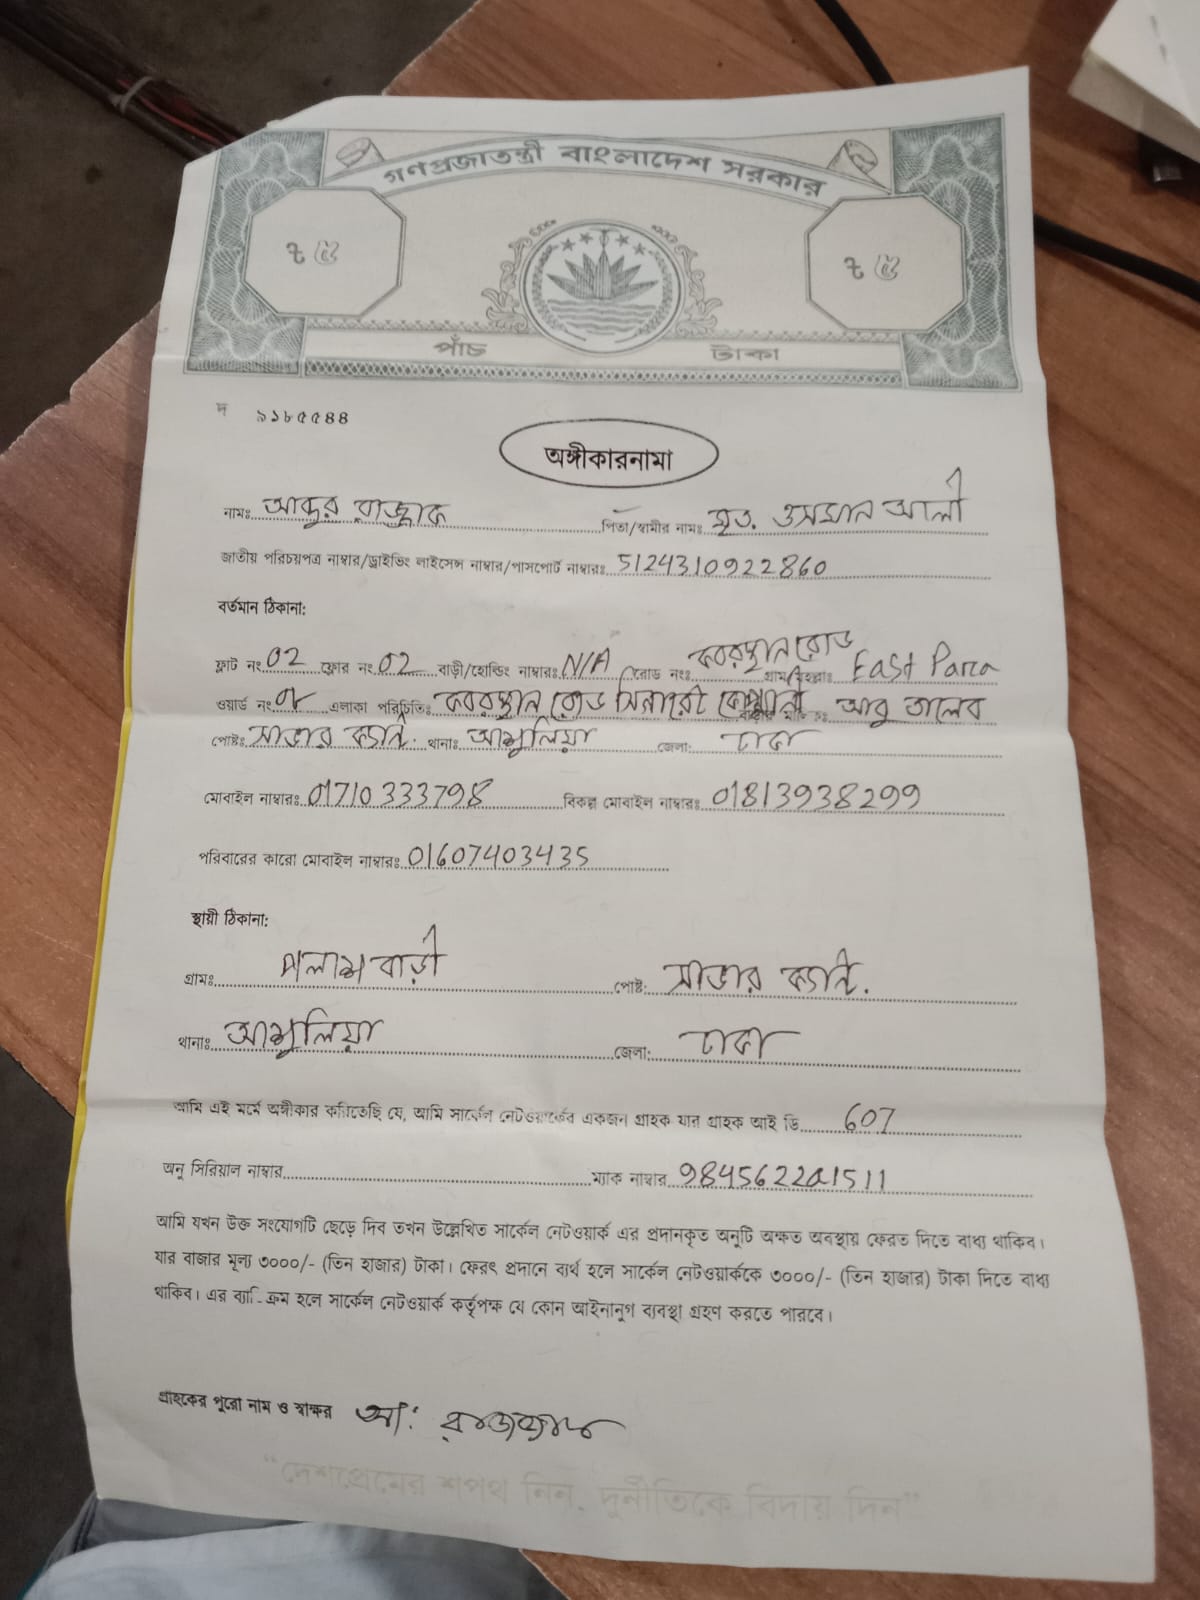 গণপ্রজাতন্ত্রী বাংলাদেশ সরকার
৳ ৫ ৳ ৫
পাঁচ টাকা
দ ৯১৮৫৫৪৪
অঙ্গীকারনামা
নামঃ আব্দুর রাজ্জাক পিতা/স্বামীর নামঃ মৃত. ওসমান আলী
জাতীয় পরিচয়পত্র নাম্বার/ড্রাইভিং লাইসেন্স নাম্বার/পাসপোর্ট নাম্বারঃ 5124310922860
বর্তমান ঠিকানা:
ফ্লাট নং 02 ফ্লোর নং 02 বাড়ী/হোল্ডিং নাম্বারঃ N/A রোড নং কবরস্থান রোড গ্রাম/মহল্লাঃ East Para
ওয়ার্ড নং এলাকা পরিচিতিঃ কবরস্থান রোড আবু তালেব
পোষ্টঃ সাভার ক্যান্ট. থানাঃ আশুলিয়া জেলা: ঢাকা
মোবাইল নাম্বারঃ 01710333798 বিকল্প মোবাইল নাম্বারঃ 01813938299
পরিবারের কারো মোবাইল নাম্বারঃ 01607403435
স্থায়ী ঠিকানা:
গ্রামঃ পলাশ বাড়ী পোষ্ট: সাভার ক্যান্ট.
থানাঃ আশুলিয়া জেলা: ঢাকা
আমি এই মর্মে অঙ্গীকার করিতেছি যে, আমি সার্কেল নেটওয়ার্কের একজন গ্রাহক যার গ্রাহক আই ডি 607
অনু সিরিয়াল নাম্বার ম্যাক নাম্বার 9845622a1511
আমি যখন উক্ত সংযোগটি ছেড়ে দিব তখন উল্লেখিত সার্কেল নেটওয়ার্ক এর প্রদানকৃত অনুটি অক্ষত অবস্থায় ফেরত দিতে বাধ্য থাকিব।
যার বাজার মূল্য ৩০০০/- (তিন হাজার) টাকা। ফেরৎ প্রদানে ব্যর্থ হলে সার্কেল নেটওয়ার্ককে ৩০০০/- (তিন হাজার) টাকা দিতে বাধ্য
থাকিব। এর ব্যতিক্রম হলে সার্কেল নেটওয়ার্ক কর্তৃপক্ষ যে কোন আইনানুগ ব্যবস্থা গ্রহণ করতে পারবে।
গ্রাহকের পুরো নাম ও স্বাক্ষর আ: রাজ্জাক
"দেশপ্রেমের শপথ নিন, দুর্নীতিকে বিদায় দিন"